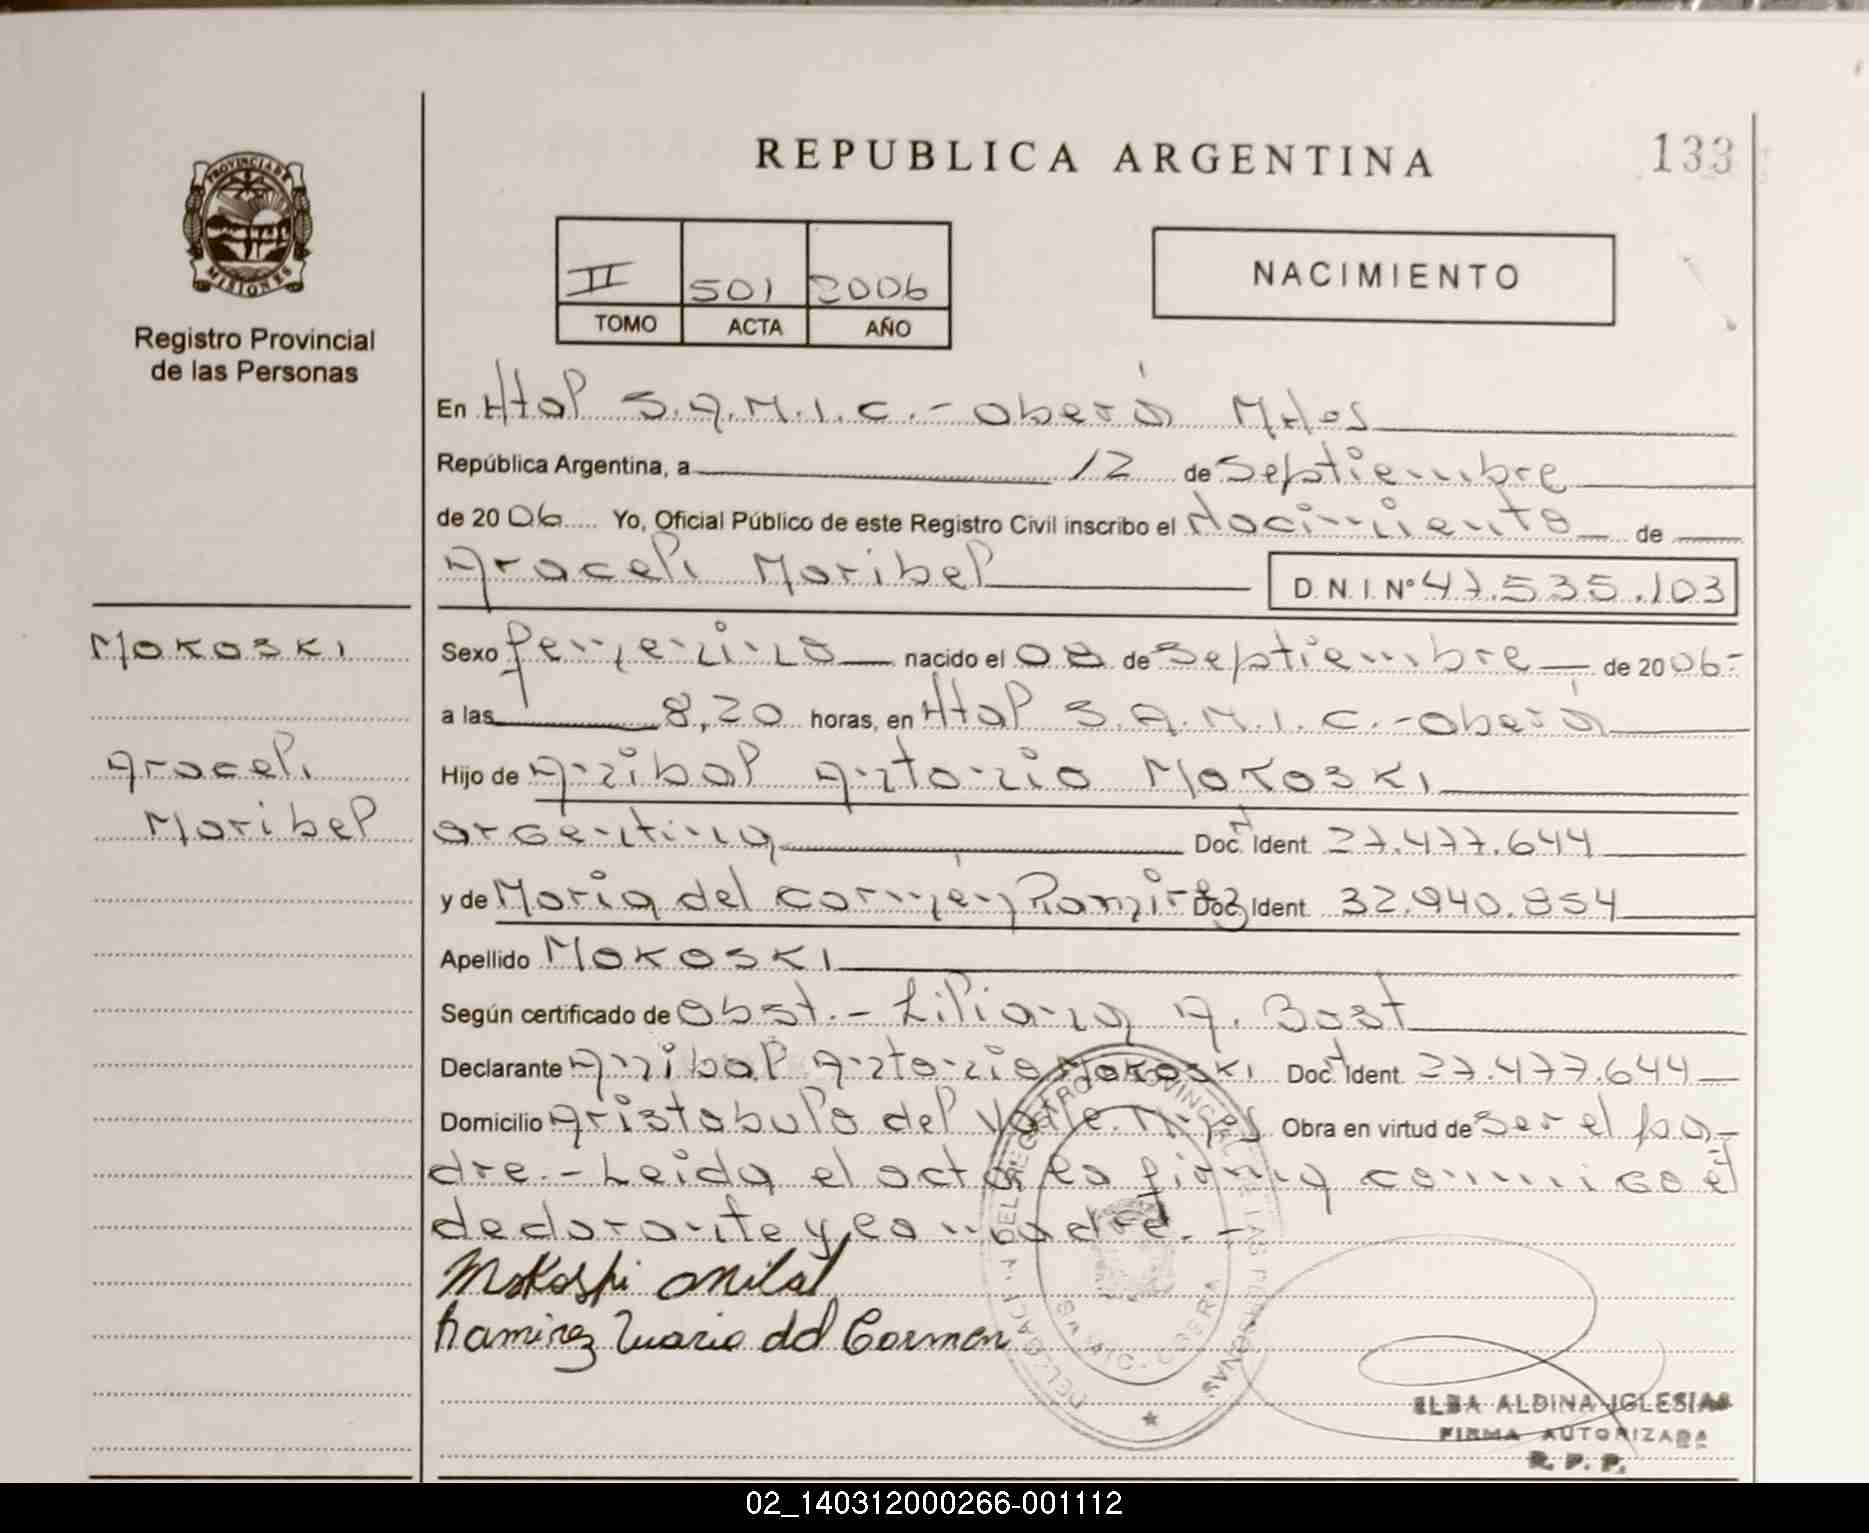 REPUBLICA ARGENTINA
133
PROVINCIA DE
MISIONES
Registro Provincial
de las Personas
II 501 2006
TOMO ACTA AÑO
NACIMIENTO
En Htal S.A.M.I.C.- Oberá Mnes
República Argentina, a 12 de Septiembre
de 2006 Yo, Oficial Público de este Registro Civil inscribo el Nacimiento de
Araceli Maribel D.N.I. Nº 47.535.103
MOKOSKI
Araceli
Maribel
Sexo femenino nacido el 08 de Septiembre de 2006-
a las 8,20 horas, en Htal S.A.M.I.C.- Oberá
Hijo de Anibal Antonio MOKOSKI
argentina Doc. Ident. 27.477.644
y de Maria del Carmen Ramirez Doc. Ident. 32.940.854
Apellido MOKOSKI
Según certificado de Obst.- Liliana A. Bost
Declarante Anibal Antonio MOKOSKI Doc. Ident. 27.477.644
Domicilio Aristobulo del Valle. Mnes Obra en virtud de ser el pa-
dre.- Leida el acta la firma conmigo el
declarante y la madre.-
Mokoski Anibal
Ramirez Maria del Carmen
ELBA ALDINA IGLESIAS
FIRMA AUTORIZADA
R. P. P.
02_140312000266-001112